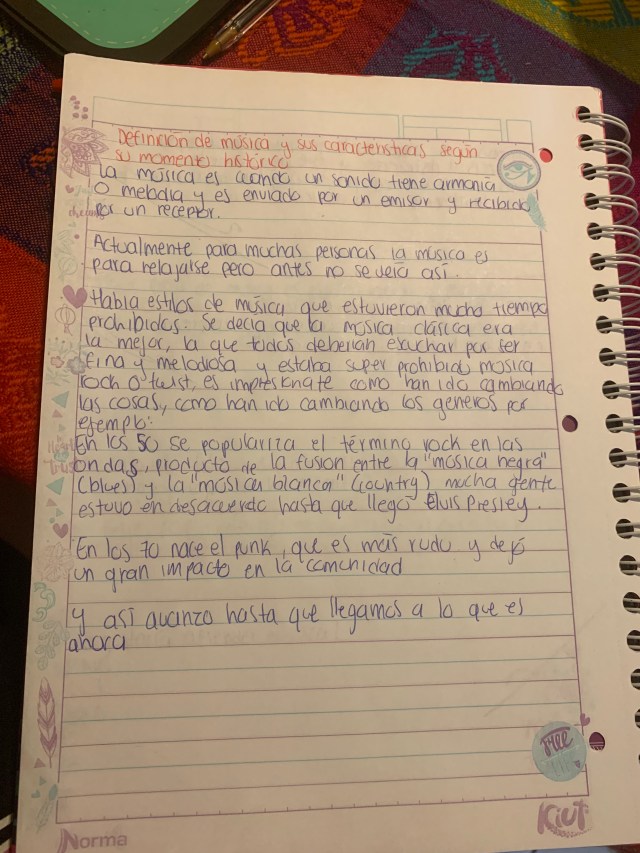 Definición de música y sus características según
su momento histórico
La música es cuando un sonido tiene armonía
O melodía y es enviado por un emisor y recibido
por un receptor.
Actualmente para muchas personas la música es
para relajalse pero antes no se veía así.
Había estilos de música que estuvieron mucho tiempo
prohibidos. Se decía que la música clásica era
la mejor, la que todos deberían exuchar por ser
fina y melodiosa y estaba super prohibida música
rock o twist, es impresionate como han ido cambiando
las cosas, como han ido cambiando los generos por
ejemplo:
En los 50 se populariza el término rock en las
ondas, producto de la fusion entre la "música negra"
(blues) y la "música blanca" (country) mucha gente
estuvo en desacuerdo hasta que llegó Elvis Presley.
En los 70 nace el punk, que es más rudo y dejó
un gran impacto en la comunidad
Y así avanzo hasta que llegamos a lo que es
ahora
Free
Kiut
Norma